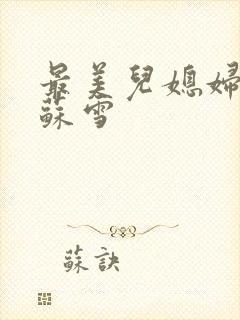 最美兒媳婦
蘇雪
蘇訣